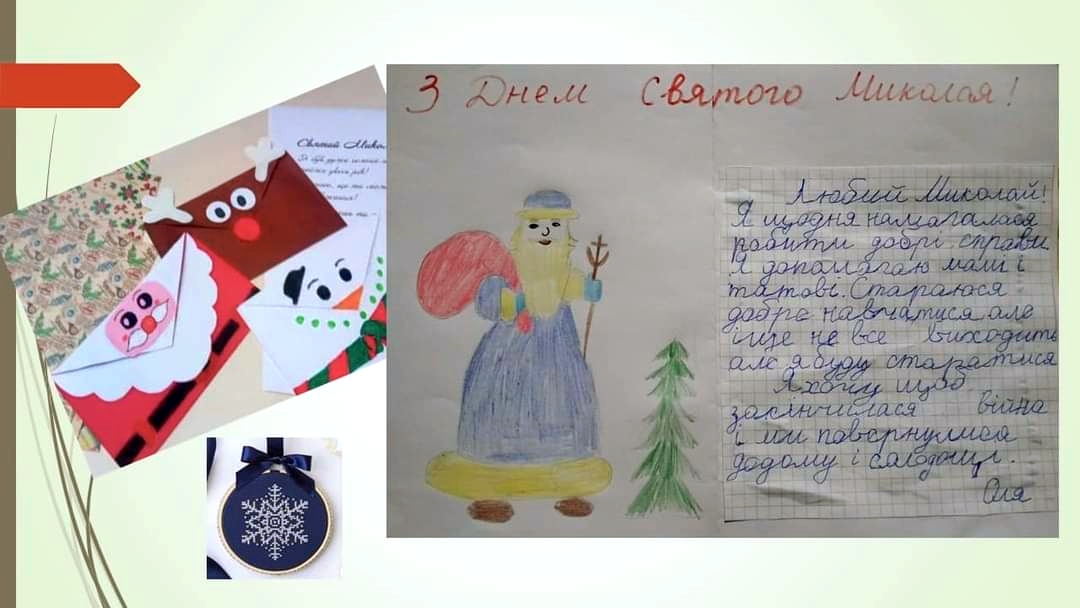 Святий Мико
З Днем Святого Миколая!
Любий Миколай!
Я щодня намагалася
робити добрі справи
Я допомагаю мамі і
татові. Стараюся
добре навчатися але
іще не все виходить
але я буду старатися
Я хочу щоб
закінчилася війна
і ми повернулися
додому і солодощі.
Оля